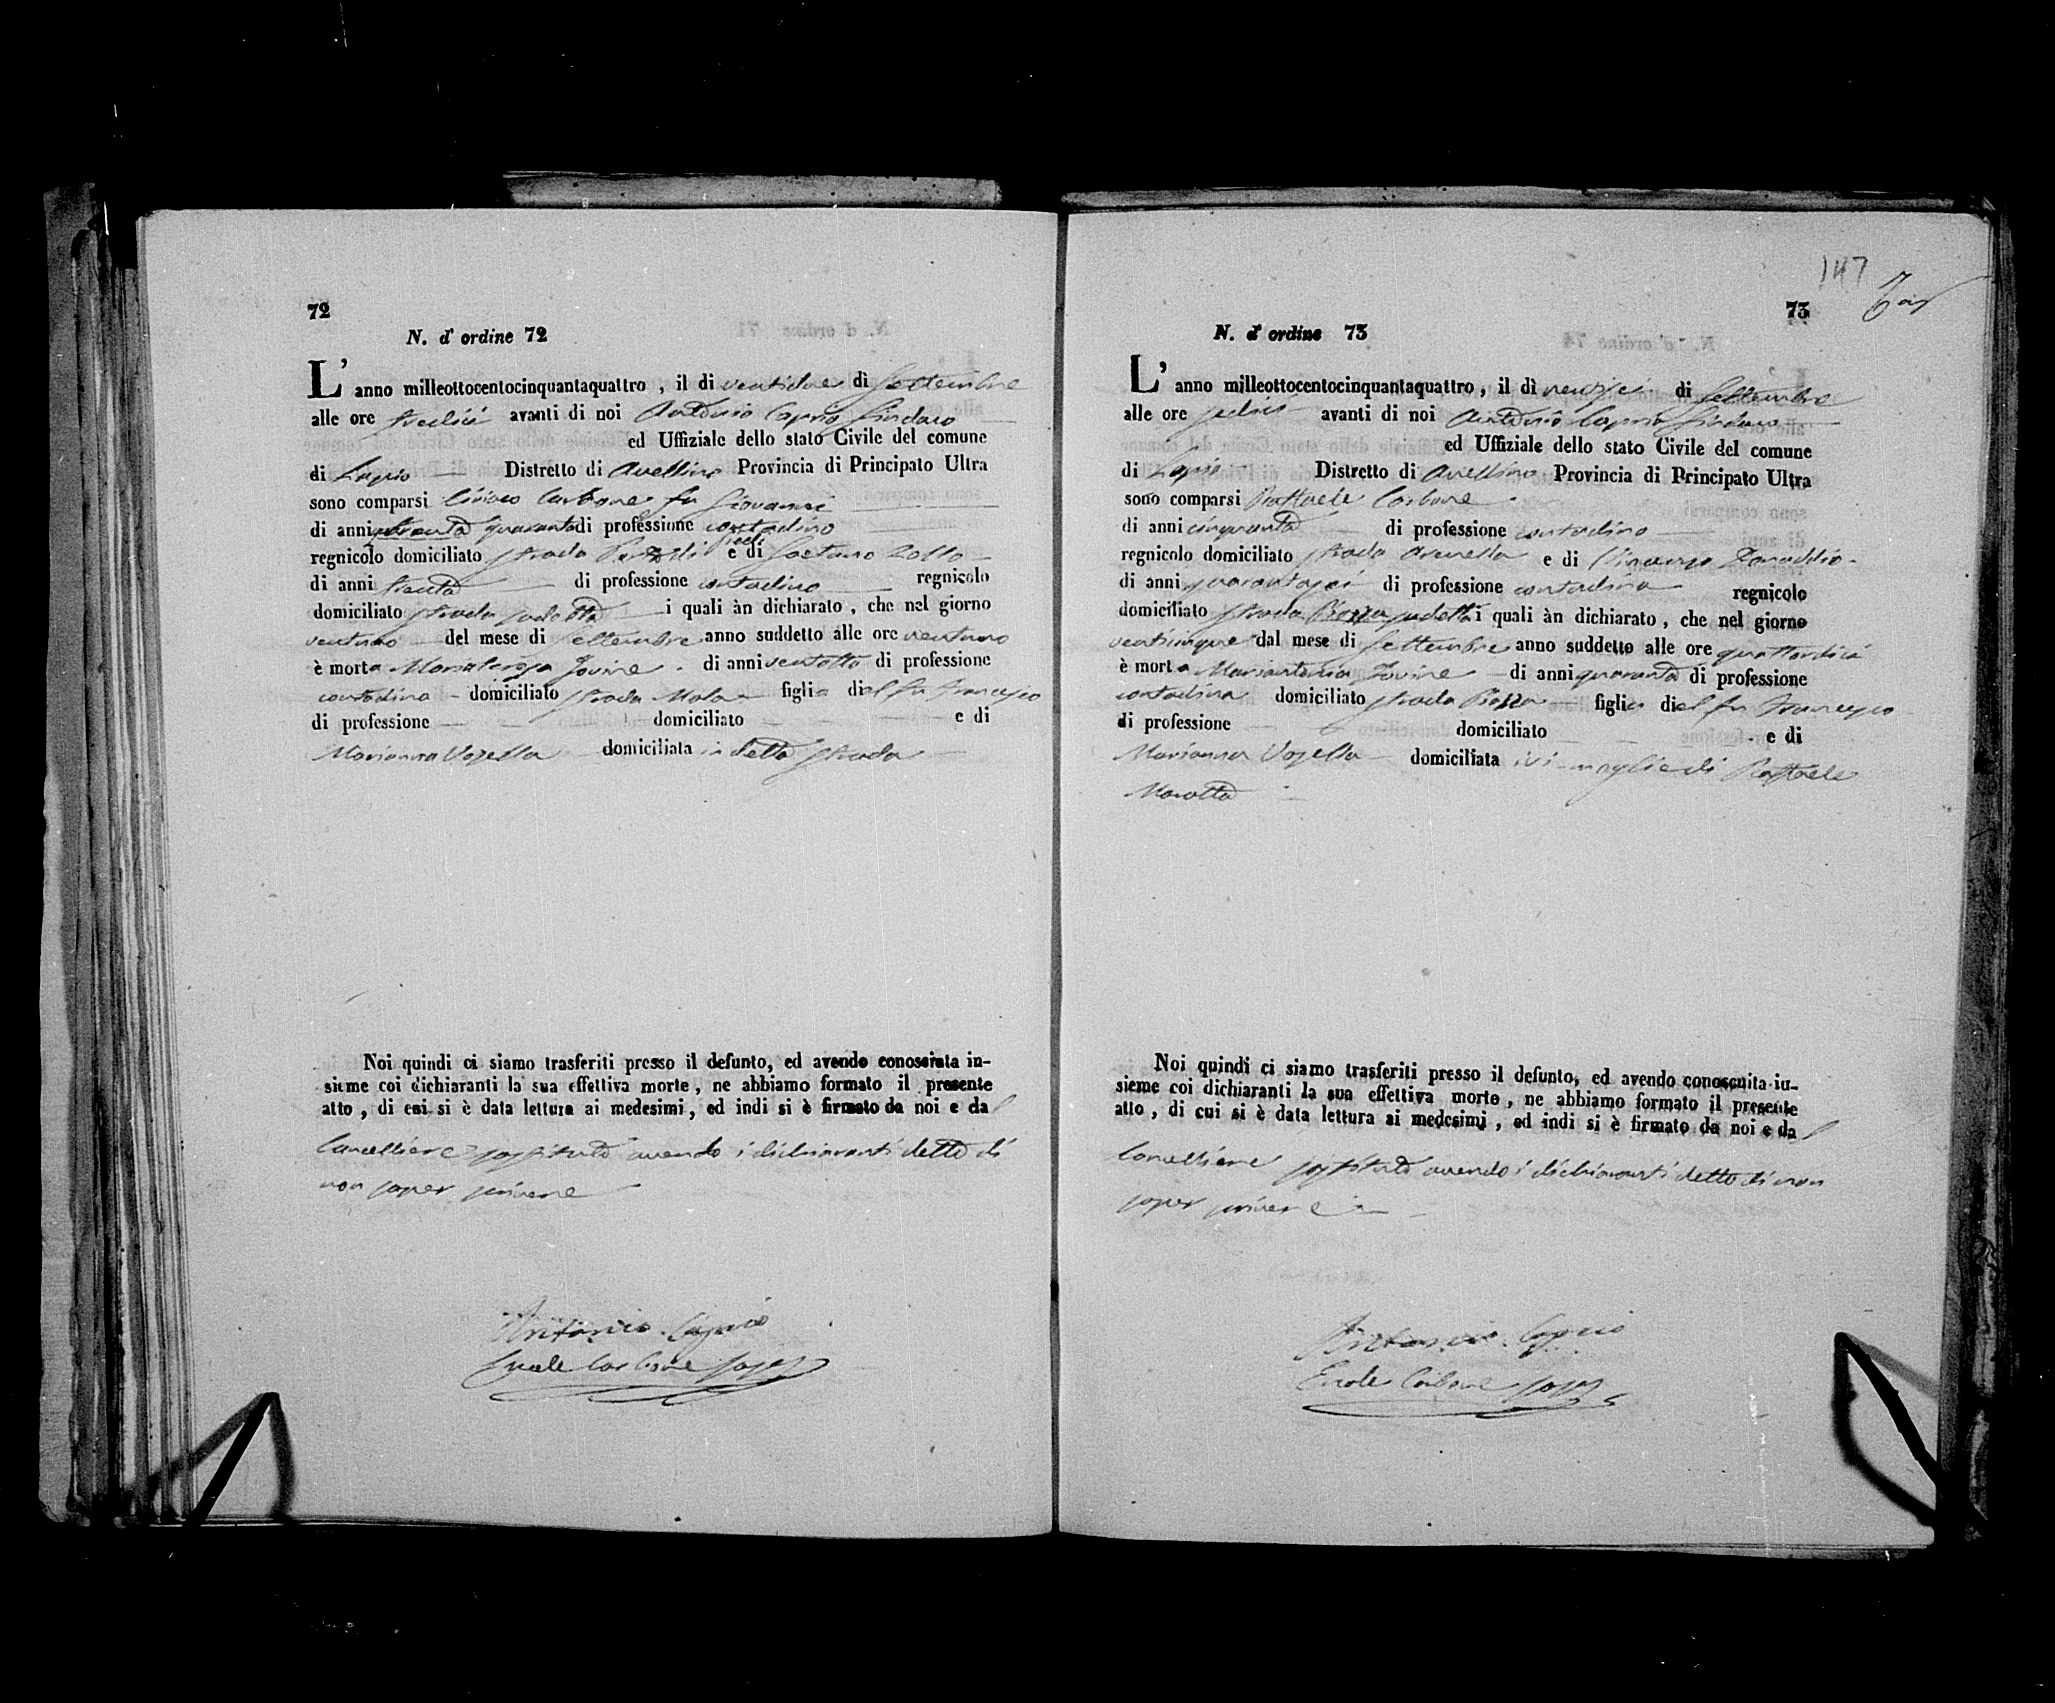 72
N. d' ordine 72
L' anno milleottocentocinquantaquattro , il di ventidue di Settembre
alle ore tredici avanti di noi Antonio Caprio Sindaco
ed Uffiziale dello stato Civile del comune
di Lapio Distretto di Avellino Provincia di Principato Ultra
sono comparsi Ciriaco Carbone fu Giovanni
di anni quaranta di professione contadino
regnicolo domiciliato strada e di Gaetano
di anni trenta di professione contadino regnicolo
domiciliato strada sudetta i quali àn dichiarato , che nel giorno
ventuno del mese di Settembre anno suddetto alle ore ventuno
è morta Mariateresa Jovine di anni ventotto di professione
contadina domiciliato strada Mola figlia del fu Francesco
di professione domiciliato e di
Marianna Vozella domiciliata in detta strada
Noi quindi ci siamo trasferiti presso il defunto, ed avendo conosciuta in-
sieme coi dichiaranti la sua effettiva morte , ne abbiamo formato il presente
atto , di cui si è data lettura ai medesimi , ed indi si è firmato da noi e dal
Cancelliere sostituto avendo i dichiaranti detto di
non saper scrivere
Antonio Caprio
Ercole Carbone
147
73
N. d' ordine 73
L' anno milleottocentocinquantaquattro , il dì ventisei di Settembre
alle ore sedici avanti di noi Antonio Caprio Sindaco
ed Uffiziale dello stato Civile del comune
di Lapio Distretto di Avellino Provincia di Principato Ultra
sono comparsi Raffaele Carbone
di anni cinquanta di professione contadino
regnicolo domiciliato strada Arenella e di Vincenzo
di anni quarantasei di professione contadino regnicolo
domiciliato strada Piazza sudetta i quali àn dichiarato , che nel giorno
venticinque dal mese di Settembre anno suddetto alle ore quattordici
è morta Mariantonia Jovine di anni quaranta di professione
contadina domiciliato strada Piazza figlia del fu Francesco
di professione domiciliato e di
Marianna Vozella domiciliata ivi moglie di Raffaele
Marotta
Noi quindi ci siamo trasferiti presso il defunto, ed avendo conosciuta in-
sieme coi dichiaranti la sua effettiva morte , ne abbiamo formato il presente
atto , di cui si è data lettura ai medesimi , ed indi si è firmato da noi e dal
Cancelliere sostituto avendo i dichiaranti detto di non
saper scrivere
Antonio Caprio
Ercole Carbone